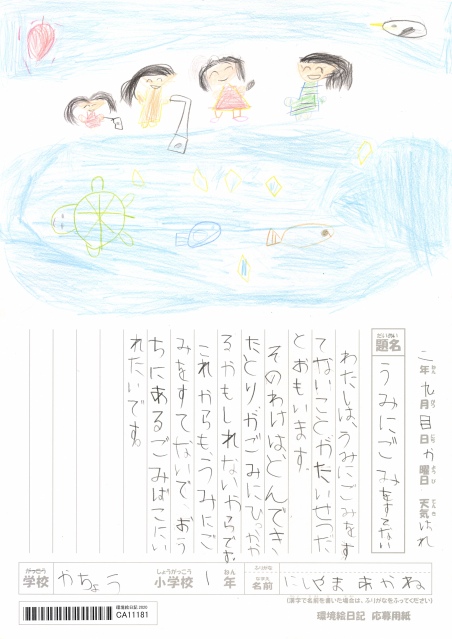 二年九月目日か曜日 天気はれ
だいめい
題名
うみにごみをすてない
わたしは、うみにごみをす
てないことがたいせつだ
とおもいます。
そのわけは、とんできた
とりがごみにひっかか
るかもしれないからです。
これからも、うみにご
みをすてないで、おう
ちにあるごみばこにい
れたいです。
がっこう
学校
かちょう
しょうがっこう
小学校
1
ねん
年
ふりがな
名前
にしやま あかね
(漢字で名前を書いた場合は、ふりがなをふってください)
環境絵日記 2020
CA11181
環境絵日記 応募用紙